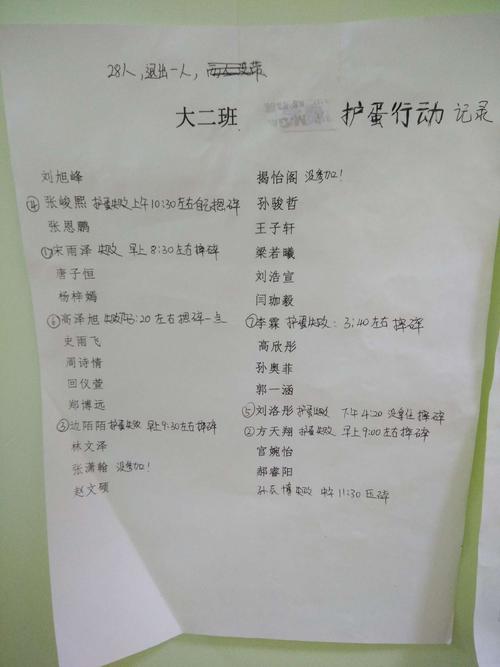 28人，退出一人，
大二班 护蛋行动 记录
刘旭峰
④ 张峻熙 护蛋失败上午10:30左右自己捏碎
张恩鹏
①宋雨泽 失败 早上8:30左右摔碎
唐子恒
杨梓嫣
⑥高泽旭 失败 :20左右捏碎一点
史雨飞
周诗情
回仪萱
郑博远
③边陌陌 护蛋失败 早上9:30左右摔碎
林文泽
张潇翰 没参加！
赵文硕
揭怡阁 没参加！
孙骏哲
王子轩
梁若曦
刘浩宣
闫珈毅
⑦李霖 护蛋失败：3:40左右摔碎
高欣彤
孙奥菲
郭一涵
⑤刘洛彤 护蛋失败 下午4:20 没拿住摔碎
②方天翔 护蛋失败 早上9:00左右摔碎
官婉怡
郝睿阳
孙辰博 失败 中午11:30压碎